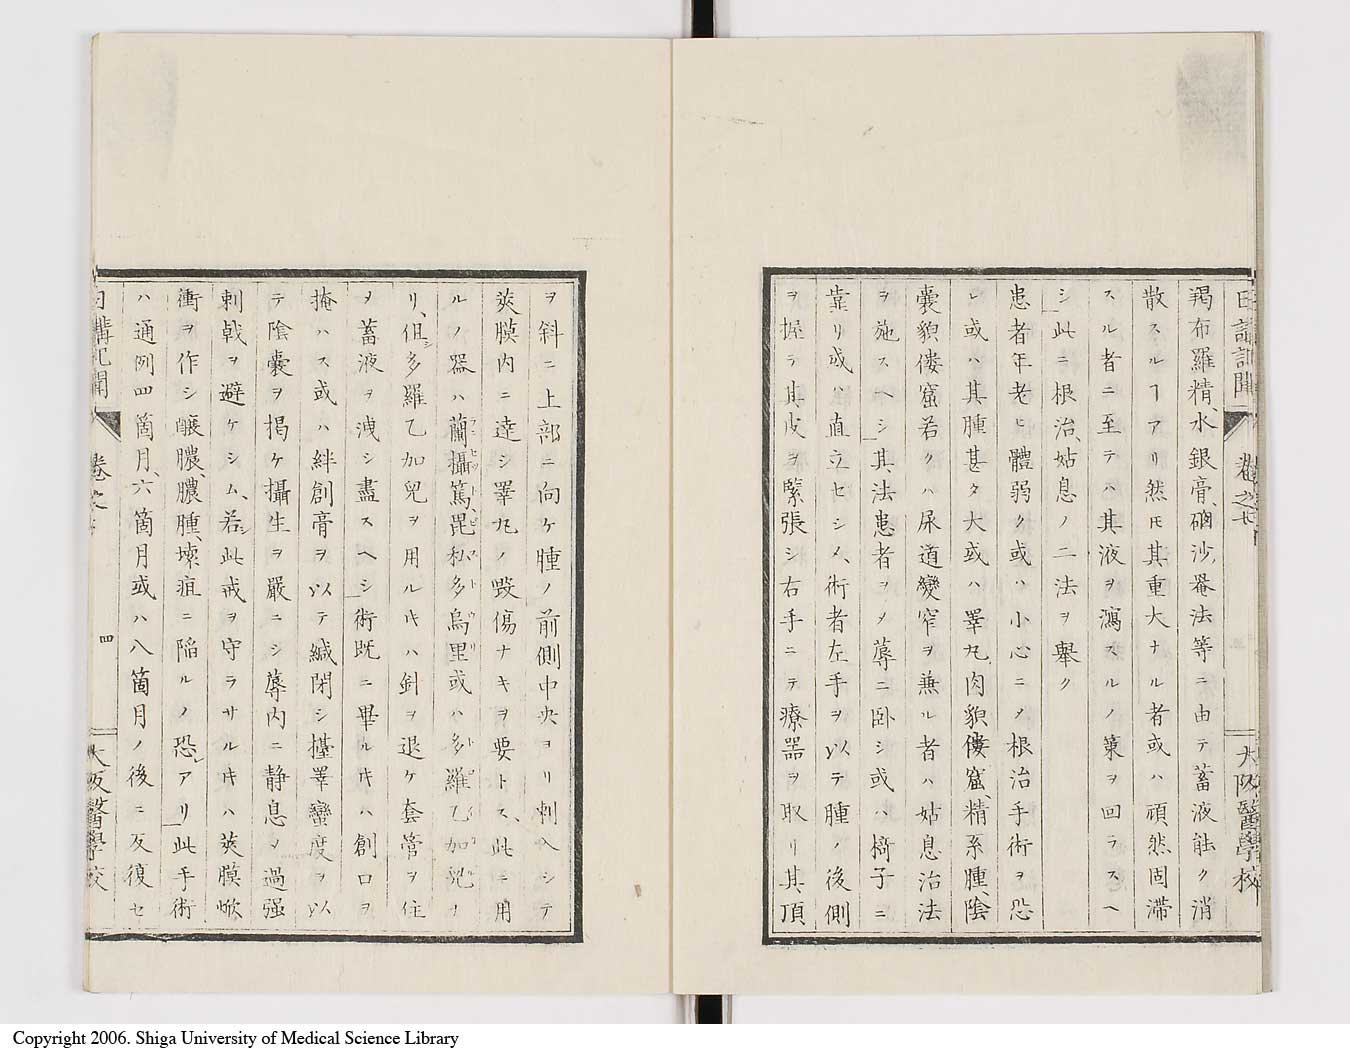 日講記聞
卷之廿
大阪醫學校
羯布羅精、水銀膏、硇沙、菴法等ニ由テ蓄液能ク消
散スルヿアリ然𪜈其重大ナル者或ハ頑然固滯
スル者ニ至テハ其液ヲ瀉スルノ策ヲ回ラスヘ
シ此ニ根治、姑息ノ二法ヲ擧ク
患者年老ヒ體弱ク或ハ小心ニ〆根治手術ヲ恐
レ或ハ其腫甚タ大或ハ睪丸肉貌僂窟、精系腫、陰
囊貌僂窟若クハ尿道變窄ヲ兼ル者ハ姑息治法
ヲ施スヘシ其法患者ヲ〆蓐ニ卧シ或ハ椅子ニ
靠リ或ハ直立セシメ、術者左手ヲ以テ腫ノ後側
ヲ握テ其皮ヲ緊張シ右手ニテ療器ヲ取リ其頂
ヲ斜ニ上部ニ向ケ腫ノ前側中央ヨリ刺入シテ
莢膜内ニ達シ睪丸ノ毀傷ナキヲ要トス、此ニ用
ルノ器ハ蘭攝篤、毘私多烏里或ハ多羅乙加兒ナ
リ、伹多羅乙加兒ヲ用ル𪜈ハ針ヲ退ケ套管ヲ住
メ蓄液ヲ洩シ盡スヘシ術既ニ畢ルキハ創口ヲ
掩ハス或ハ絆創膏ヲ以テ緘閉シ擡睪巒度ヲ以
テ陰囊ヲ揭ケ攝生ヲ嚴ニシ蓐内ニ静息〆過强
刺戟ヲ避ケシム、若シ此戒ヲ守ラサルキハ莢膜焮
衝ヲ作シ釀膿膿腫、壊疽ニ陷ルノ恐アリ此手術
ハ通例四箇月、六箇月或ハ八箇月ノ後ニ反復セ
日講記聞
卷之
四
大阪醫學校
Copyright 2006. Shiga University of Medical Science Library